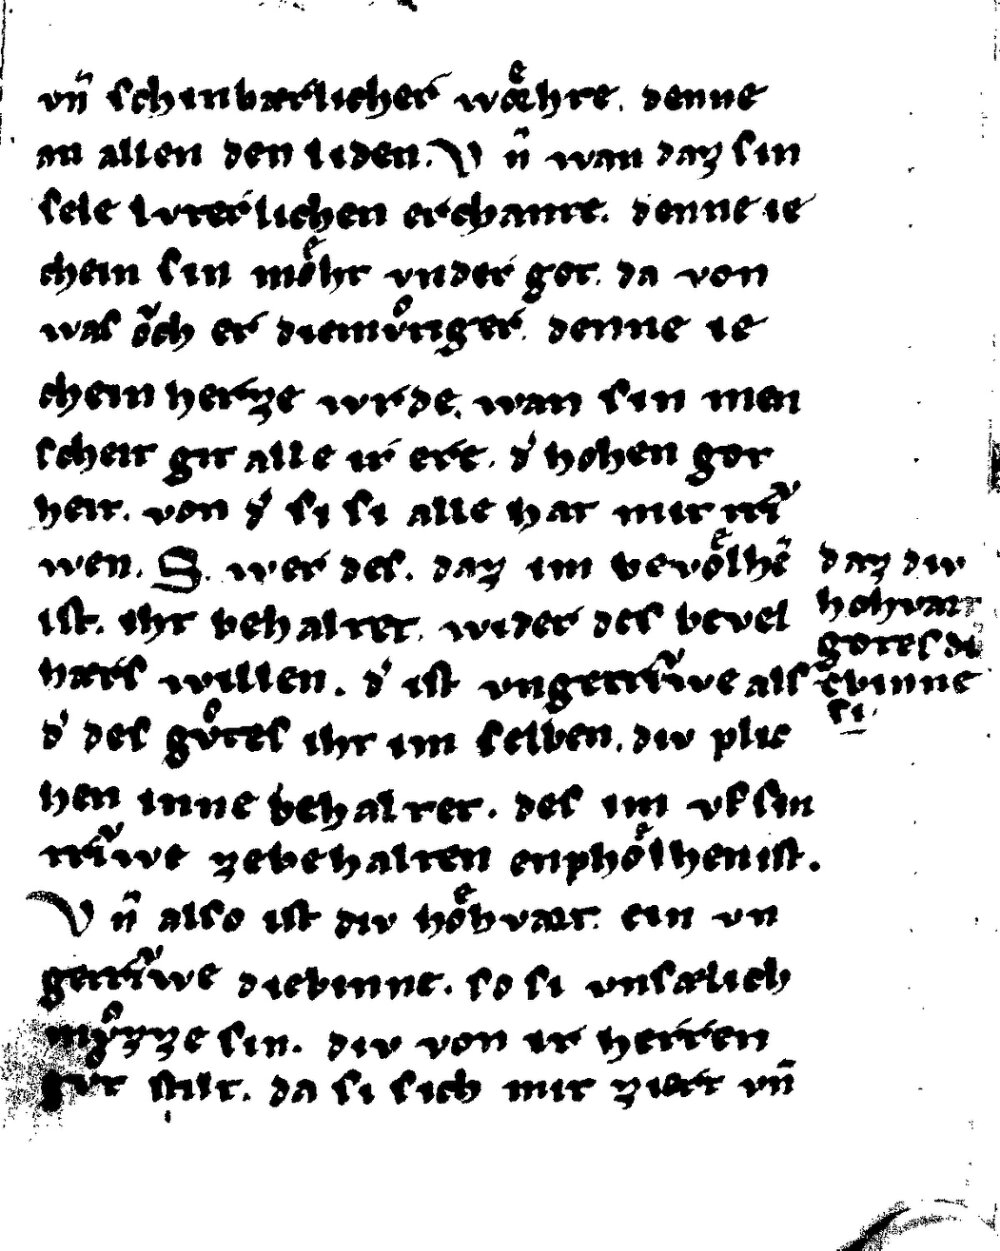 vn̄ schinbærlicher wæͤhre. denne
an allen den liden. Vn̄ wan daz sin
sele luterlichen erchante. denne ie
chein sin moͤhr vnder got. da von
was oͮch er diemuͦtiger. denne ie
chein herze wrde. wan sin men
scheit git alle ir ere. d' hohen got
heit. von d' si si alle hat mit triͮ
wen. S. wer des. daz im bevoͤlhē
ist. iht behaltet. wider des bevel
hærs willen. d' ist vngetriͮwe als
d' des guͦtes iht im selben. div plic
hen inne behaltet. des im vf sin
triͮwe ze behalten enphoͤlhen ist.
Vn̄ also ist div hoͤhvart. ein vn
getriͮwe diebinne. so si vnsælich
muͦzze sin. div von ir herren
guͦt stilt. da si sich mit ziert vn̄
daz div
hohvart
gotes di
ebinne
si.